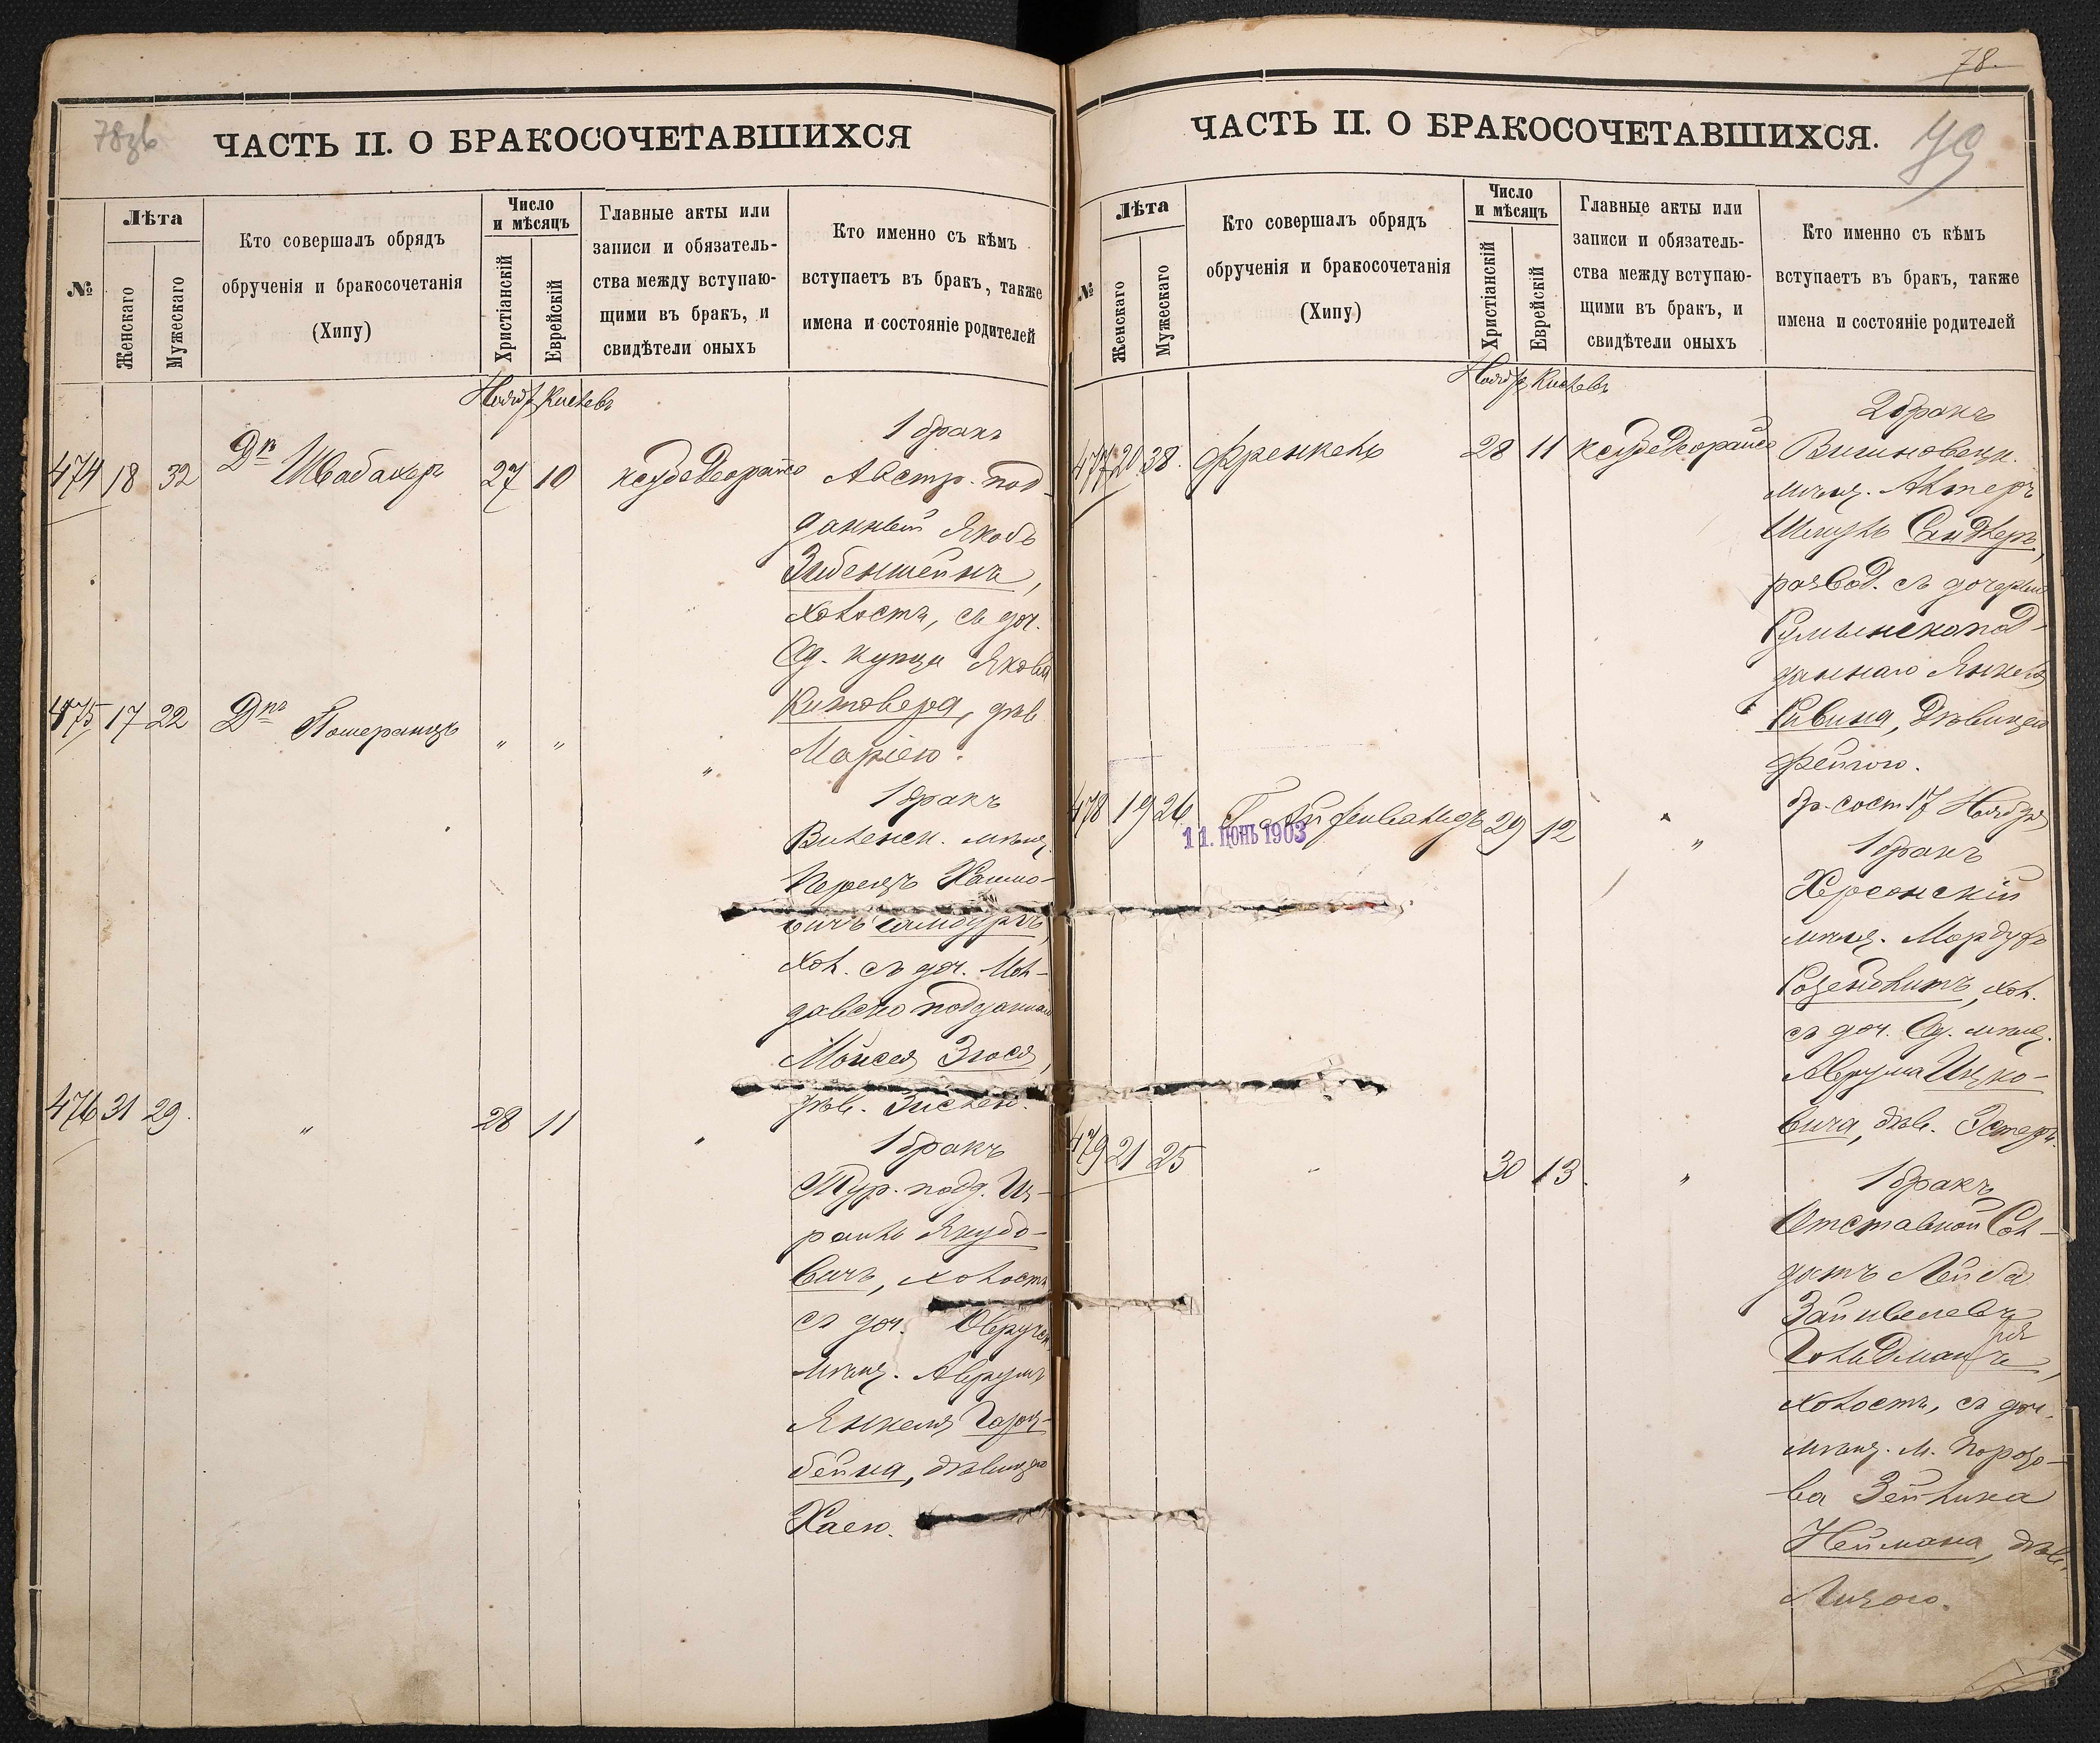 78об
ЧАСТЬ II. О БРАКОСОЧЕТАВШИХСЯ
№
Лѣта
Женскаго
Мужескаго
Кто совершалъ обрядъ
обрученія и бракосочетанія
(Хипу)
Число
и мѣсяцъ
Христіанскій
Еврейскій
Главные акты или
записи и обязатель-
ства между вступаю-
щими въ бракъ, и
свидѣтели оныхъ
Кто именно съ кѣмъ
вступаетъ въ бракъ, также
имена и состояніе родителей
Ноябр Кислевъ
474 18 32 Дръ Швабахеръ 27 10
1 бракъ
Австр. под-
данный Якобъ
Зибенштейнъ,
холостъ, съ доч.
Од. купца Якова
Китовера, дѣв
Маріею.
475 17 22 Дръ Померанцъ „ „ „
1 бракъ
Виленск. мѣщ.
Перецъ Хаимо-
вичъ
хол. съ доч. Мол-
давско подданнаго
Мойсея Зюся,
дѣв. Зислею.
476 31 29. „ 28 11 „
1 бракъ
Тур. подд. Из-
раиль Якубо-
вичъ, холостъ
съ доч. Овручск.
мѣщ. Аврумъ
Янкеля Гарц-
бейна, дѣвицею
Хаею.
78.
79
ЧАСТЬ II. О БРАКОСОЧЕТАВШИХСЯ.
№
Лѣта
Женскаго
Мужескаго
Кто совершалъ обрядъ
обрученія и бракосочетанія
(Хипу)
Число
и мѣсяцъ
Христіанскій
Еврейскій
Главные акты или
записи и обязатель-
ства между вступаю-
щими въ бракъ, и
свидѣтели оныхъ
Кто именно съ кѣмъ
вступаетъ въ бракъ, также
имена и состояніе родителей
Ноябр Кислевъ
477 20 38. Френкель 28 11
2 бракъ
мѣщ. Актеръ
Шмуль Сандлеръ,
развод. съ дочерью
Румынско под-
даннаго Янкеля
Ривина, дѣвицею
Фейгою.
бр. сост 17 Ноября
478 19 26 29 12 „
11. ІЮНЬ 1903
1 бракъ
Херсонскій
мѣщ. Мордухъ
Розенблитъ, хол.
съ доч. Од. мѣщ.
Аврума Ицко-
вича, дѣв. Эстеръ.
479 21 25 „ 30 13. „
1 бракъ
Отставной Сол-
датъ Лейба
Зайвелевъ
Гольдманъ,
холостъ, съ доч.
мѣщ. м. Порозо-
ва Зейлика
Неймана, дѣв.
Лизою.